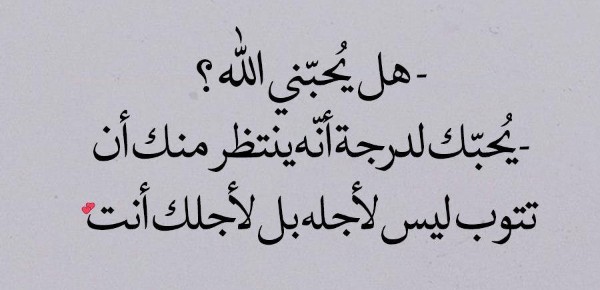 - هل يُحبّني الله ؟
-يُحبّك لدرجة أنّه ينتظر منك أن
تتوب ليس لأجله بل لأجلك أنت💕